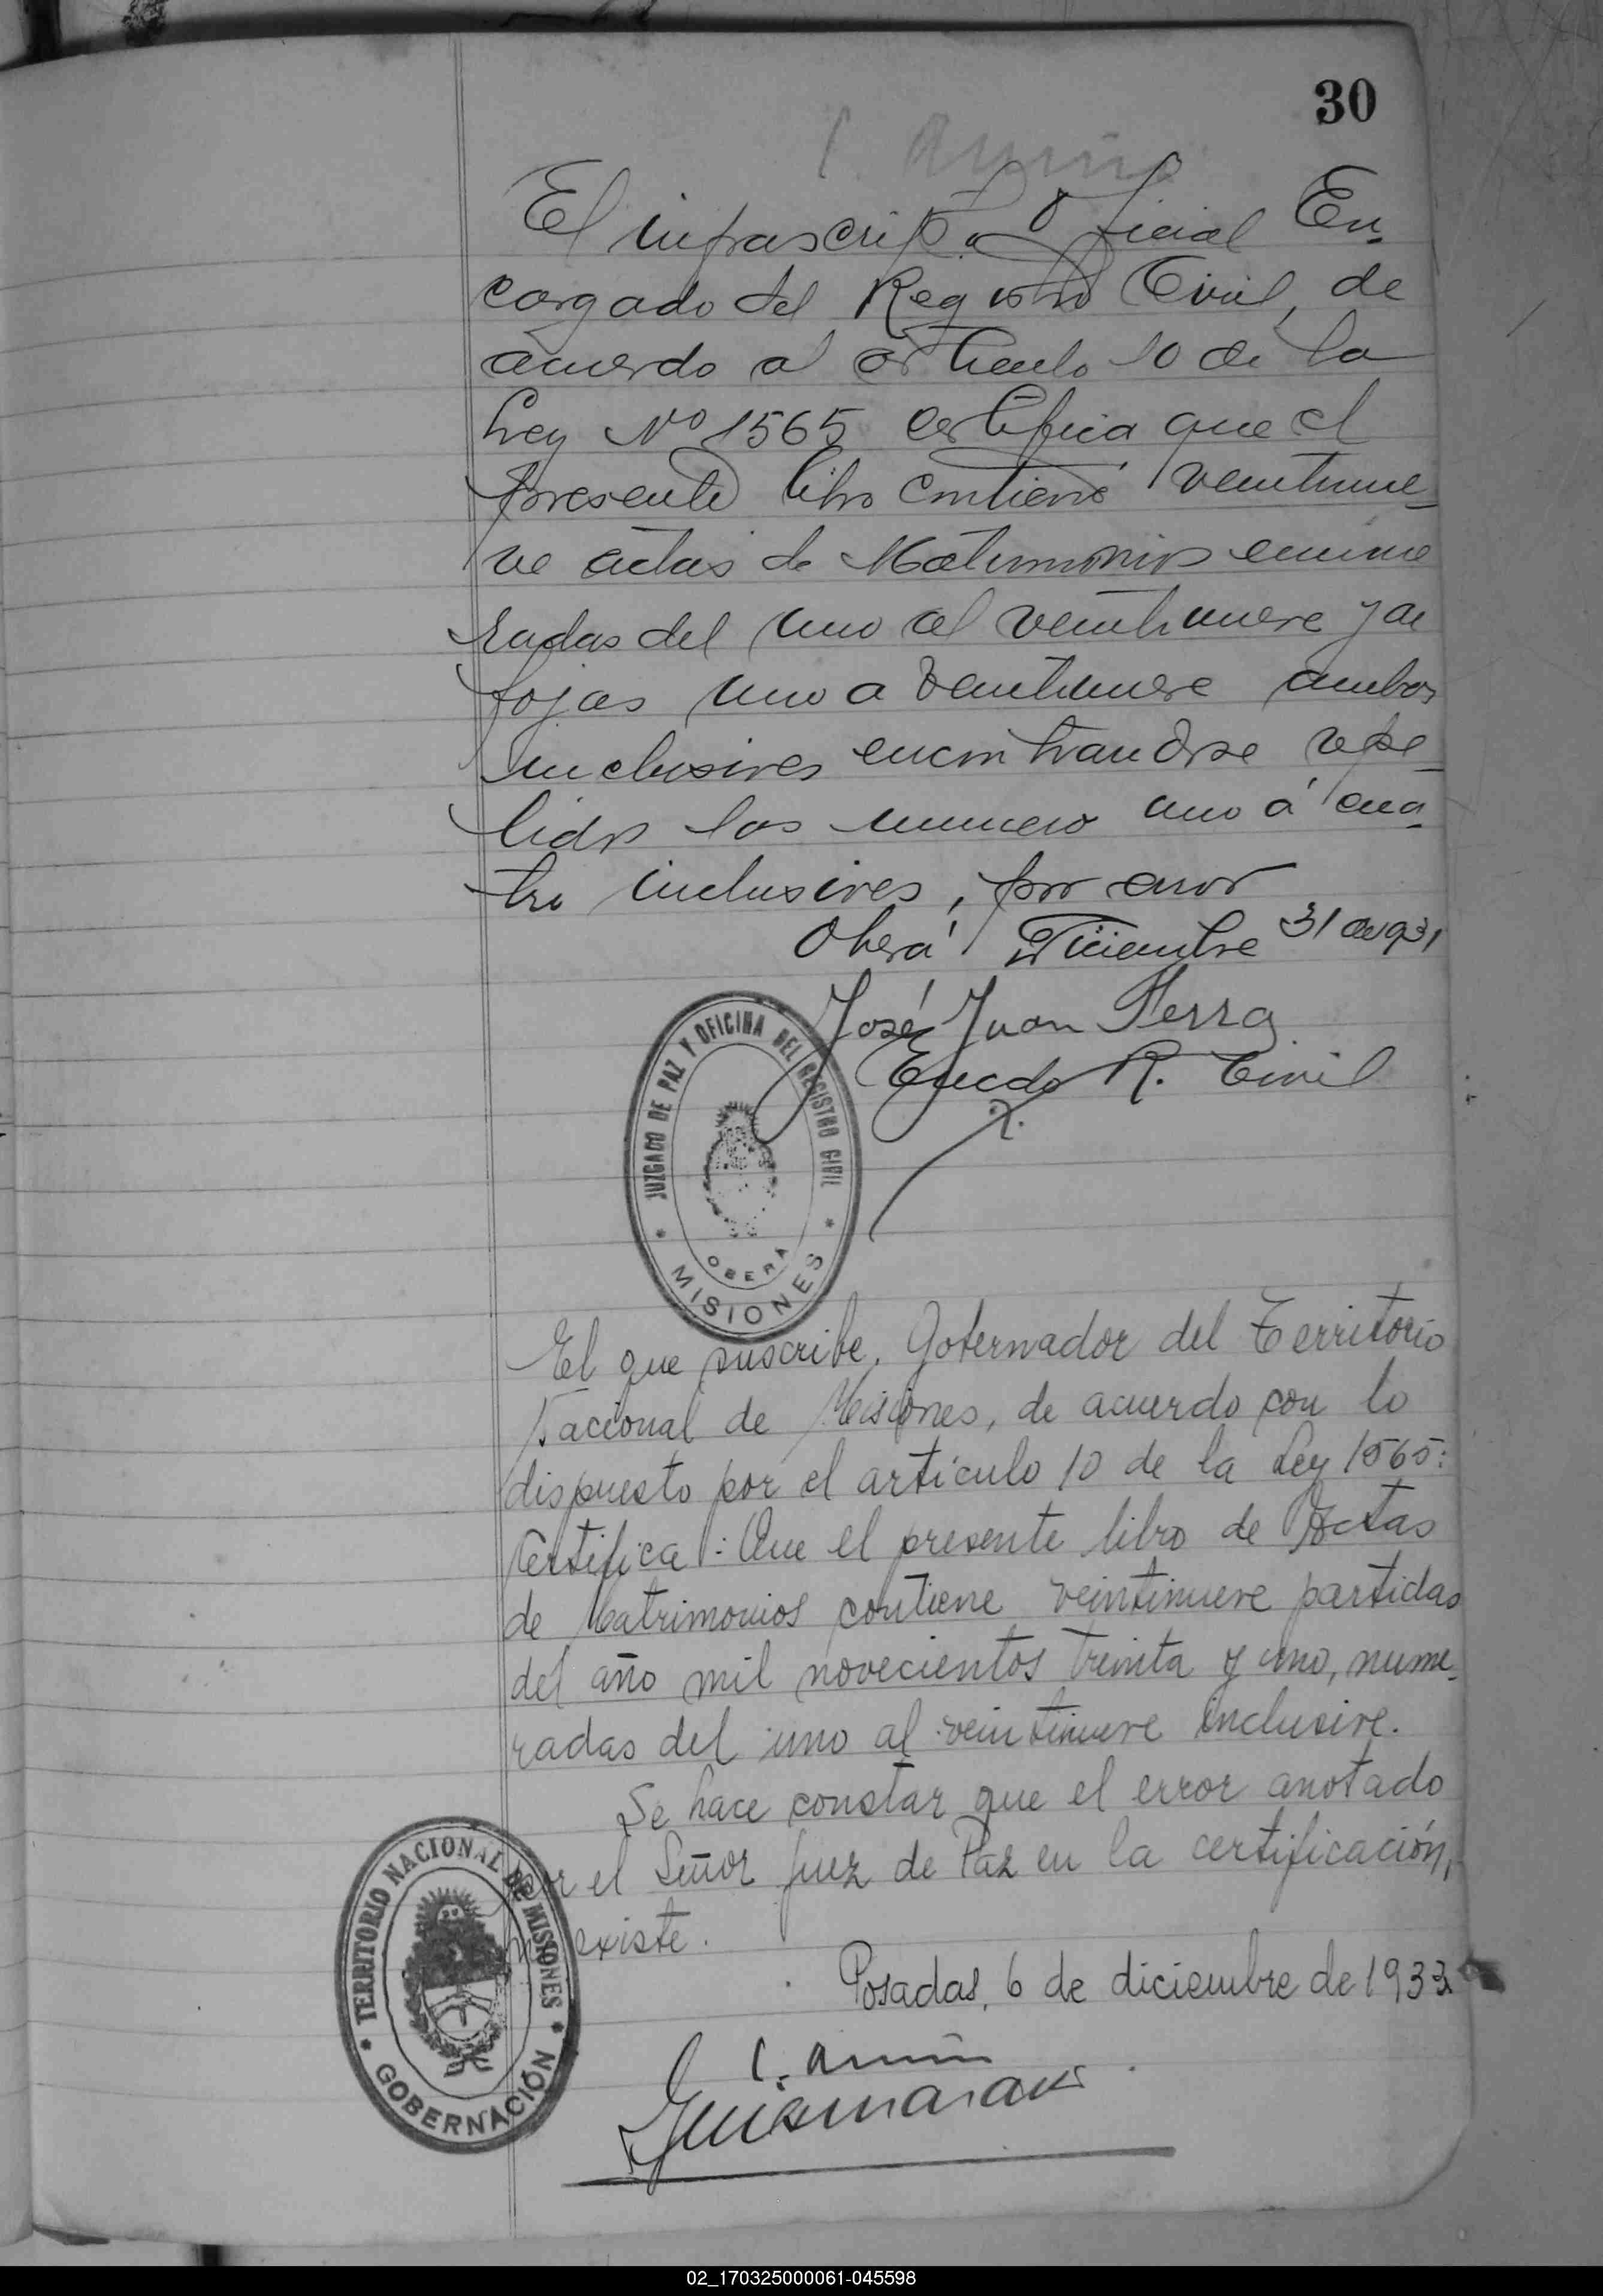 30
El infrascripto Oficial En-
cargado del Registro Civil, de
acuerdo al articulo 10 de la
Ley Nº 1565 certifica que el
presente libro contiene veintinue-
ve actas de Matrimonios enume
radas del uno al veintinueve y de
fojas uno a veintinueve ambos
inclusives encontrandose repe-
tidos los numero uno á cua-
tro inclusives, por error
Oberá Diciembre 31 de 931
José Juan Serra
Encdo R. Civil
JUZGADO DE PAZ Y OFICINA DEL REGISTRO CIVIL
OBERA
* MISIONES *
El que suscribe, Gobernador del Territorio
Nacional de Misiones, de acuerdo con lo
dispuesto por el artículo 10 de la Ley 1565:
Certifica: Que el presente libro de Actas
de Matrimonios contiene veintinueve partidas
del año mil novecientos treinta y uno, nume-
radas del uno al veintinueve inclusive.
Se hace constar que el error anotado
por el Señor Juez de Paz en la certificación,
no existe.
Posadas, 6 de diciembre de 1933
TERRITORIO NACIONAL DE MISIONES
* GOBERNACIÓN *
02_170325000061-045598